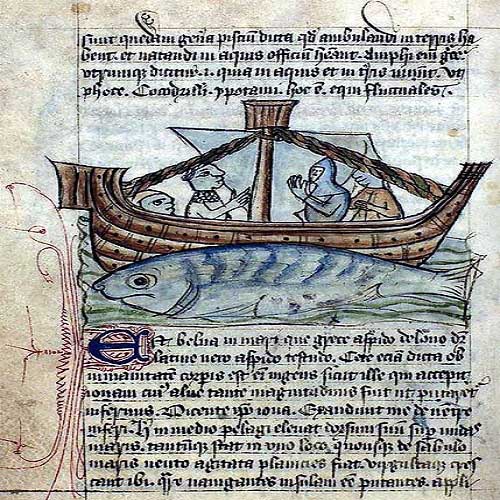 sunt quedam gen̄a pisciū dicta. qd̄ ambulandi in terris ha
bent. et natandi in aquis officiū heant. Amphi eni grece
utrunq dicitur .i. quia in aquis et in tris uiuut. Vt
phoce. Cocodrilli. ypotami. hoc ē. equi fluctuales.
Est belua in mari que grece aspido delone dr
latine uero aspido testudo. Cete eciā dicta ob
inmanitatem corpis est eī ingens sicut ille qui accepit
ionam cui alue tante magnitudinis fuit ut putaret
infernus. Dicente ipo iona. Exaudiuit me de uentre
inferi. in medio pelagi eleuat dorsum suū sup undas
maris. tantūq stat in uno loco. quousq de sabulo
maris uento agitata planicies fiat. uirgultaq cres
cant ibi. Qre nauigantes insulam eē putantes. appli